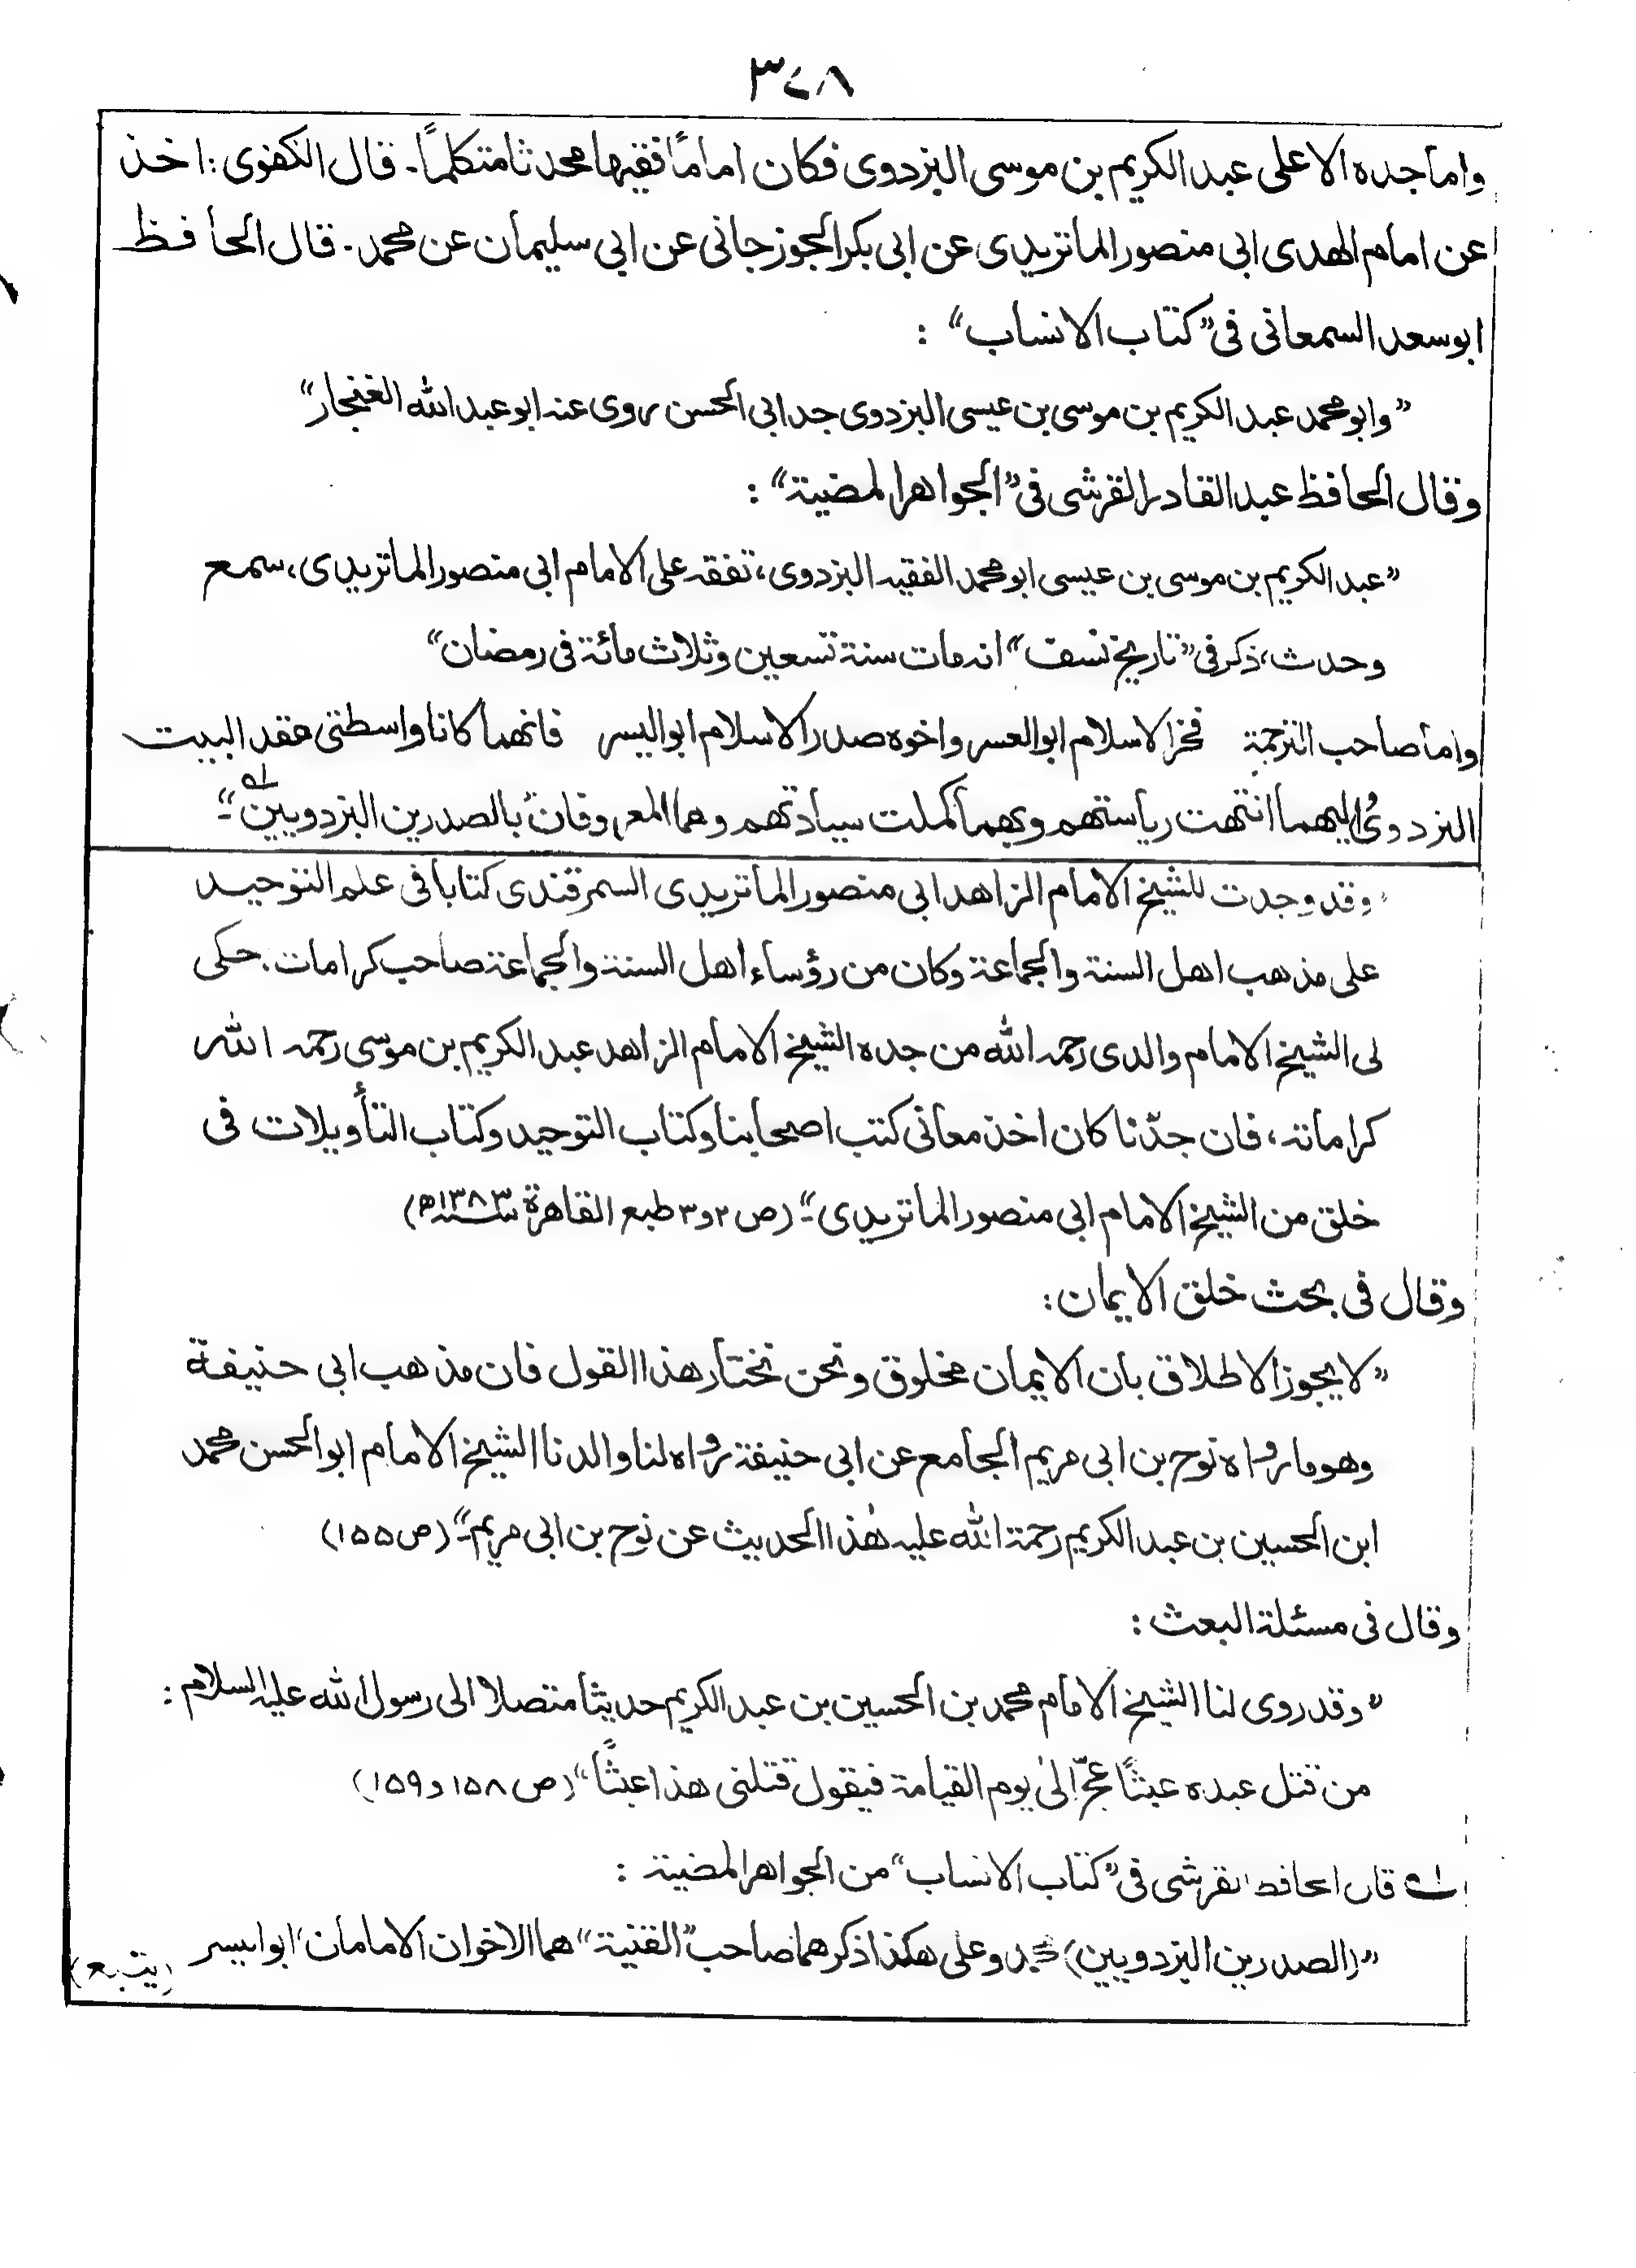 ٣٤٨
واما جده الاعلى عبد الكريم بن موسى البزدوى فكان اماماً فقيها محدثا متكلماً۔ قال الكفوى : اخذ
عن امام الهدى ابى منصور الماتريدى عن ابى بكر الجوزجانى عن ابى سليمان عن محمد۔ قال الحافظ
ابو سعد السمعانى فى ”كتاب الانساب“ :
”وابو محمد عبد الكريم بن موسى بن عيسى البزدوى جد ابى الحسن روى عنه ابو عبد الله الغنجار“
وقال الحافظ عبد القادر القرشى فى ”الجواهر المضية“ :
”عبد الكريم بن موسى بن عيسى ابو محمد الفقيه البزدوى، تفقه على الامام ابى منصور الماتريدى، سمع
وحدث، ذكر فى ”تاريخ نسف“ انه مات سنة تسعين وثلاث مائة فى رمضان“
واما صاحب الترجمة فخر الاسلام ابو العسر واخوه صدر الاسلام ابو اليسر فانهما كانا واسطتى عقد البيت
البزدوىُ اليهما انتهت رياستهم وبهما كملت سيادتهم وهما المعروفان بالصدرين البزدويين“ۓ
”وقد وجدت للشيخ الامام الزاهد ابى منصور الماتريدى السمرقندى كتابا فى علم التوحيد
على مذهب اهل السنة والجماعة وكان من رؤساء اهل السنة والجماعة صاحب كرامات۔ حكى
لى الشيخ الامام والدى رحمه الله من جده الشيخ الامام الزاهد عبد الكريم بن موسى رحمه الله
كراماته، فان جدّنا كان اخذ معانى كتب اصحابنا وكتاب التوحيد وكتاب التأويلات فى
خلق من الشيخ الامام ابى منصور الماتريدى“۔ (ص ٢ و ٣ طبع القاهرة سنة ١٣٨٣ھ)
وقال فى بحث خلق الايمان :
”لا يجوز الاطلاق بان الايمان مخلوق ونحن نختار هذا القول فان مذهب ابى حنيفة
وهو ما رواه نوح بن ابى مريم الجامع عن ابى حنيفة رواه لنا والدنا الشيخ الامام ابو الحسن محمد
ابن الحسين بن عبد الكريم رحمة الله عليه هٰذا الحديث عن نوح بن ابى مريم“۔ (ص ١٥٥)
وقال فى مسئلة البعث :
”وقد روى لنا الشيخ الامام محمد بن الحسين بن عبد الكريم حديثا متصلا الى رسول الله عليه السلام :
من قتل عبده عبثًا عجّ الىٰ يوم القيامة فيقول قتلنى هذا عبثًا“ (ص ١٥٨ و ١٥٩)
لـه قال الحافظ القرشى فى ”كتاب الانساب“ من الجواهر المضية :
”(الصدرين البزدويين) محمد وعلى هكذا ذكرهما صاحب ”القنية“ هما الاخوان الامامان، ابو اليسر (يتبع)